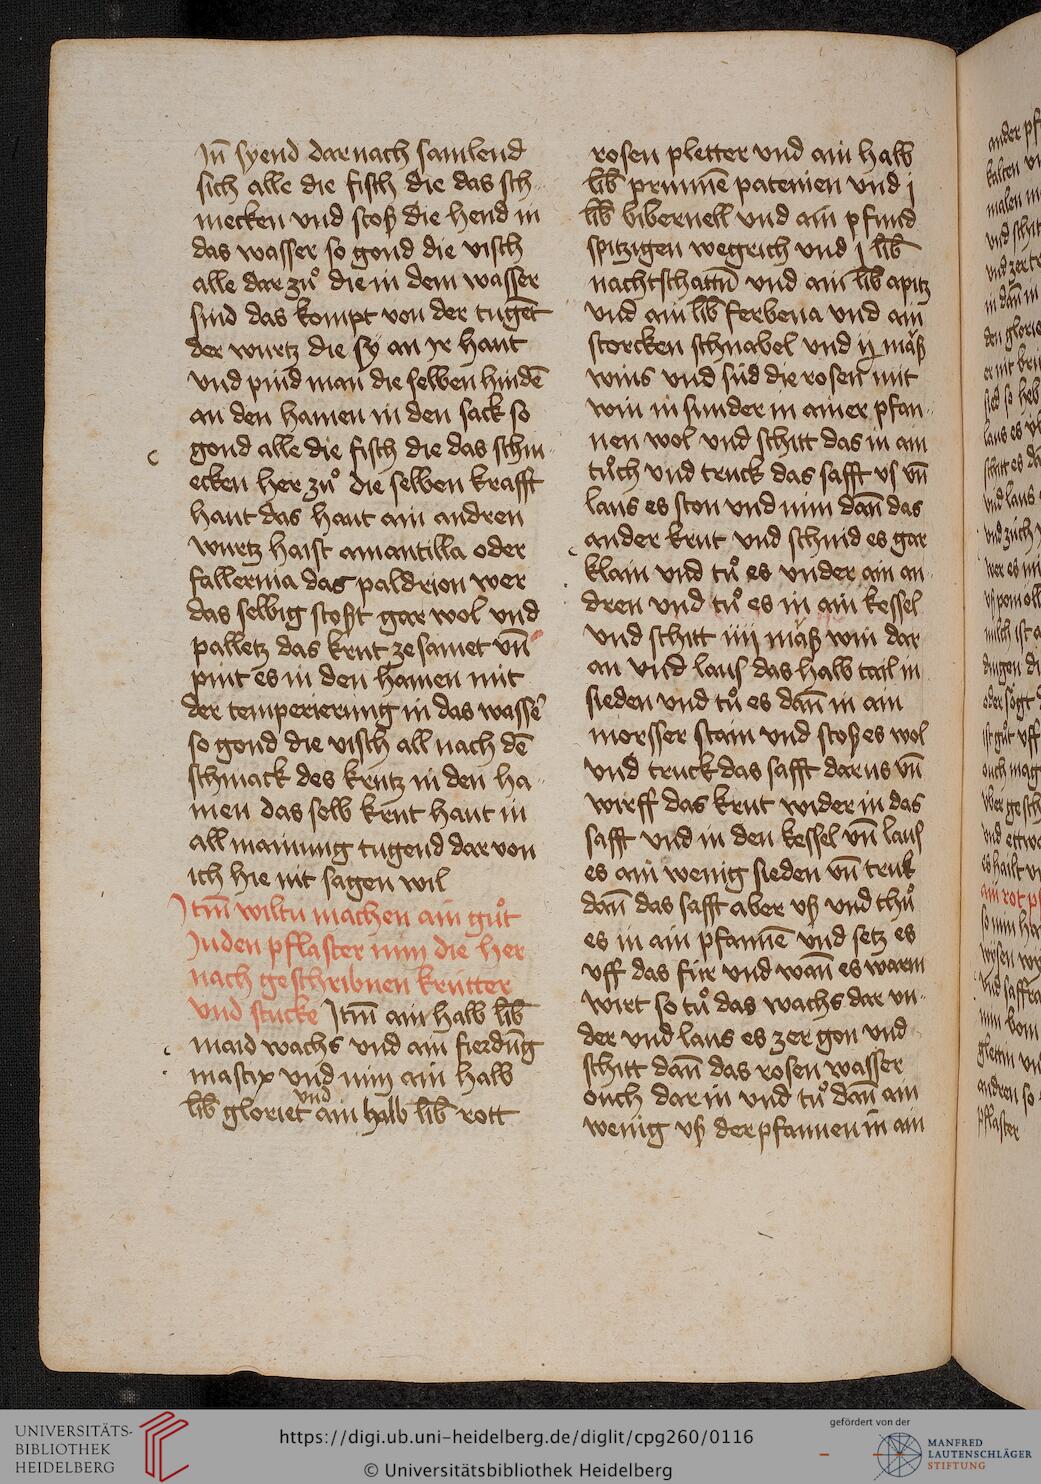 Jn̄ syend dar nach samlend
sich alle die fisch die das sch-
mecken vnd stosß die hend in
das wasser so gond die visch
alle dar zuͦ die in dem wasser
sind das kompt von der tugēt
der wurtz die sy an ir haut
vnd pind man die selben hindē
an den hamen in den sack so
gond alle die fisch die das schm-
ecken her zuͦ die selben krafft
haut das haut ain andren
wurtz haist amantilla oder
fallernia das paldrion wer
das selbig stoßt gar wol vnd
palletz das krut ze samet vn̄
pint es in den hamen mit
der temperierung in das wassē
so gond die visch all nach dē
schmack des krutz in den ha-
men das selb krut haut in
all mainung tugend dar von
ich hie nit sagen wil
Jtm̄ wiltu machen ain guͦt
Juden pflaster nim die her
nach geschribnen krutter
vnd stucke Jtm̄ ain halb lib̄
maid wachs vnd ain fierdūg
mastix vnd nim ain halb
lib̄ gloriet vnd ain halb lib̄ rott
rosen pletter vnd ain halb
lib̄ prunnē patenien vnd j
lib̄ bibernell vnd ain pfund
spitzigen wegrich vnd j lib̄
nachtschattn̄ vnd ain lib̄ apitz
vnd ain lib̄ ferbena vnd ain
storcken schnabel vnd ij mäß
wins vnd süd die rosen mit
win in sunder in ainer pfan-
nen wol vnd schitt das in ain
tuͦch vnd truck das safft vs vn̄
laus es ston vnd nim dan̄ das
ander krut vnd schnid es gar
klain vnd tuͦ es vnder ain an-
dren vnd tuͦ es in ain kessel
vnd schitt iiij mäß win dar
an vnd laus das halb tail in
sieden vnd tuͦ es dan̄ in ain
morsser stain vnd stoß es wol
vnd truck das safft dar us vn̄
wirff das krut wider in das
safft vnd in den kessel vn̄ laus
es ain wenig sieden vn̄ truk
dan̄ das safft aber vß vnd thuͦ
es in ain pfannē vnd setz es
vff das für vnd wan̄ es warm
wirt so tuͦ das wachs dar vn-
der vnd laus es zer gon vnd
schitt dan̄ das rosen wasser
ouch dar in vnd tuͦ dan̄ ain
wenig vß der pfannen in ain
ander
kalten
malen
vnd schit
in dan̄ in
den glorie
er nit
laus es
schitt es
vnd laus
wer es
milch ist
ist guͦt vff
ouch mag
vnd
es hailt
ain rot
so nim
vnd saffra
nim
andren so
pflaster
UNIVERSITÄTS-
BIBLIOTHEK
HEIDELBERG
https://digi.ub.uni-heidelberg.de/diglit/cpg260/0116
© Universitätsbibliothek Heidelberg
gefördert von der
MANFRED
LAUTENSCHLÄGER
STIFTUNG